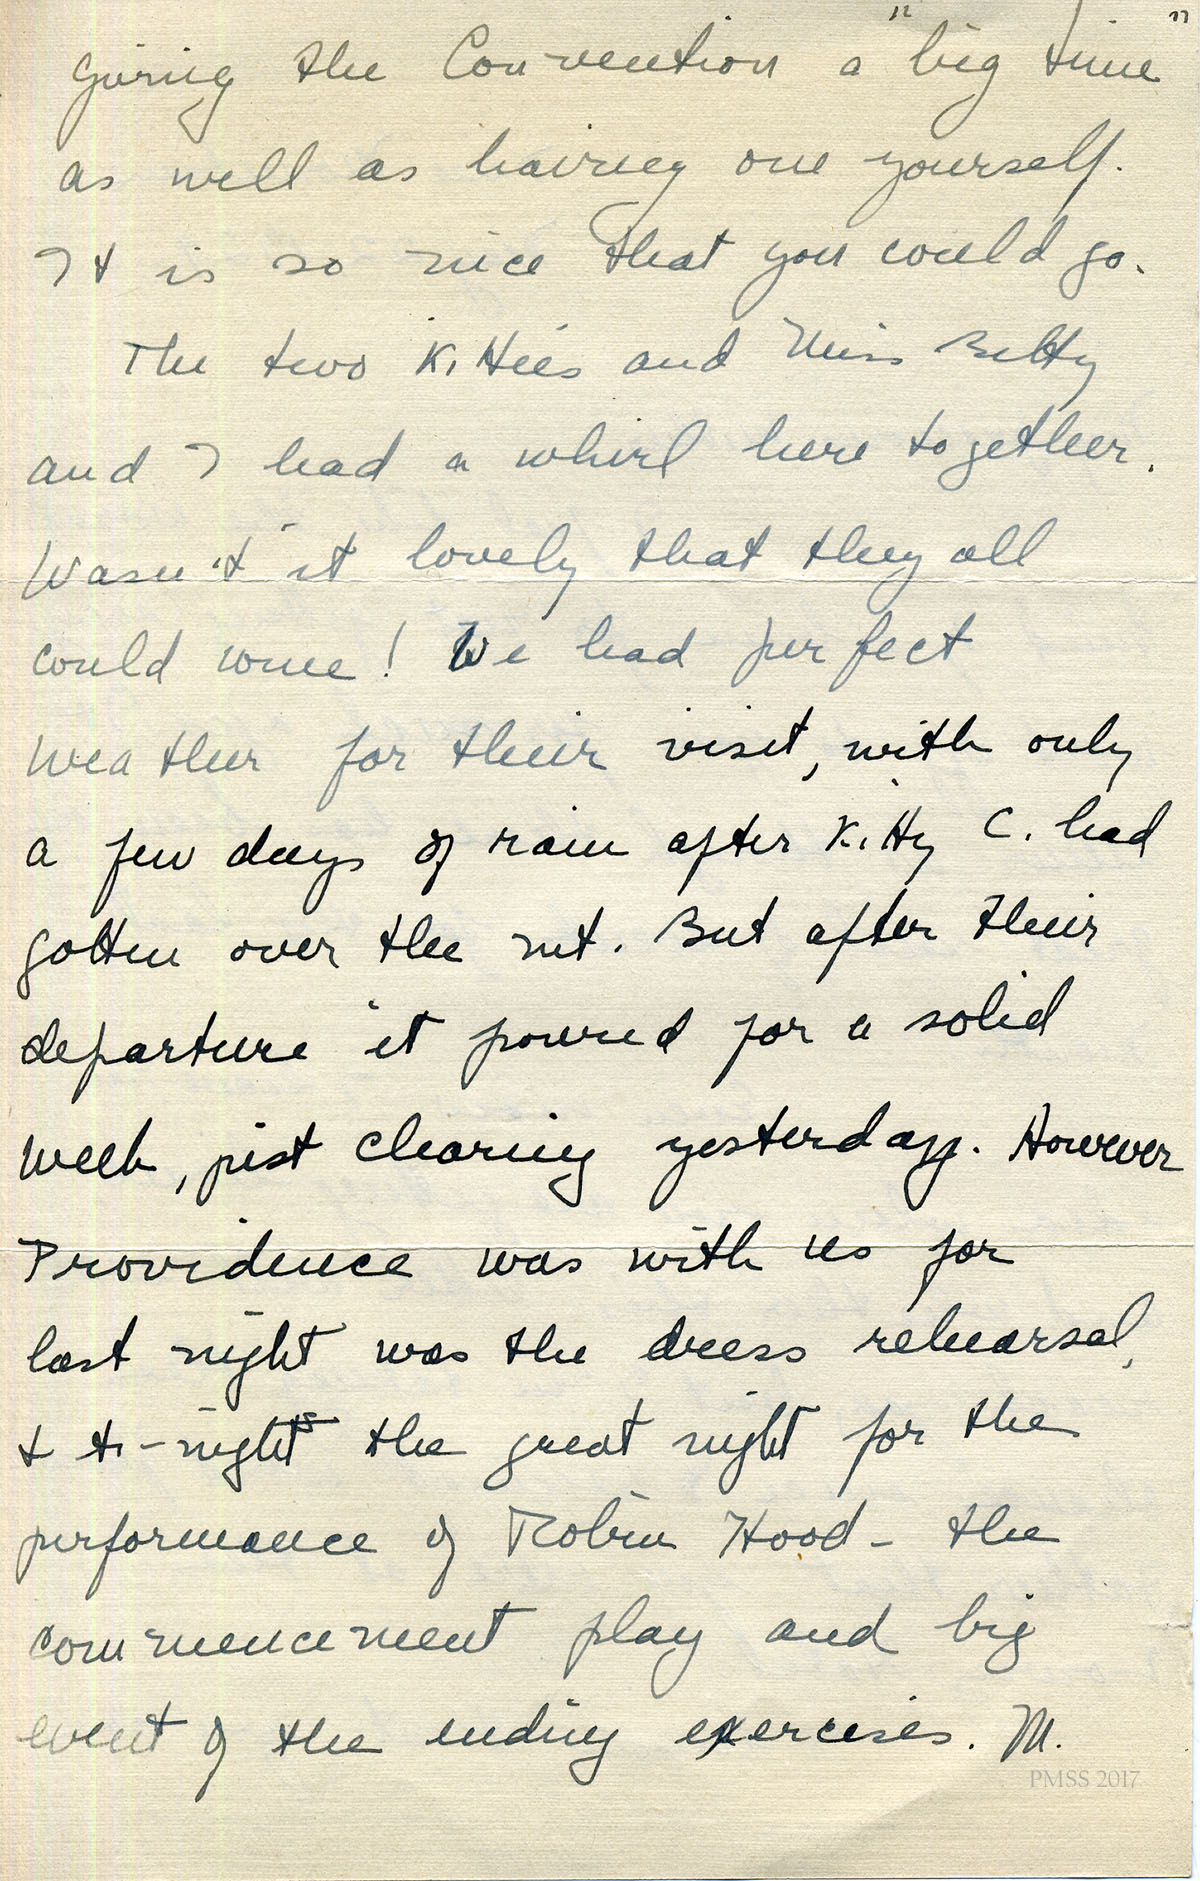 giving the Convention a "big time"
as well as having one yourself.
It is so nice that you could go.
The two Kitties and Miss Betty
and I had a whirl here together.
Wasn't it lovely that they all
could come! We had perfect
weather for their visit, with only
a few days of rain after Kitty C. had
gotten over the mt. But after their
departure it poured for a solid
week, just clearing yesterday. However
Providence was with us for
last night was the dress rehearsal,
& to-night the great night for the
performance of Robin Hood - the
commencement play and big
event of the ending exercises. M.
PMSS 2017